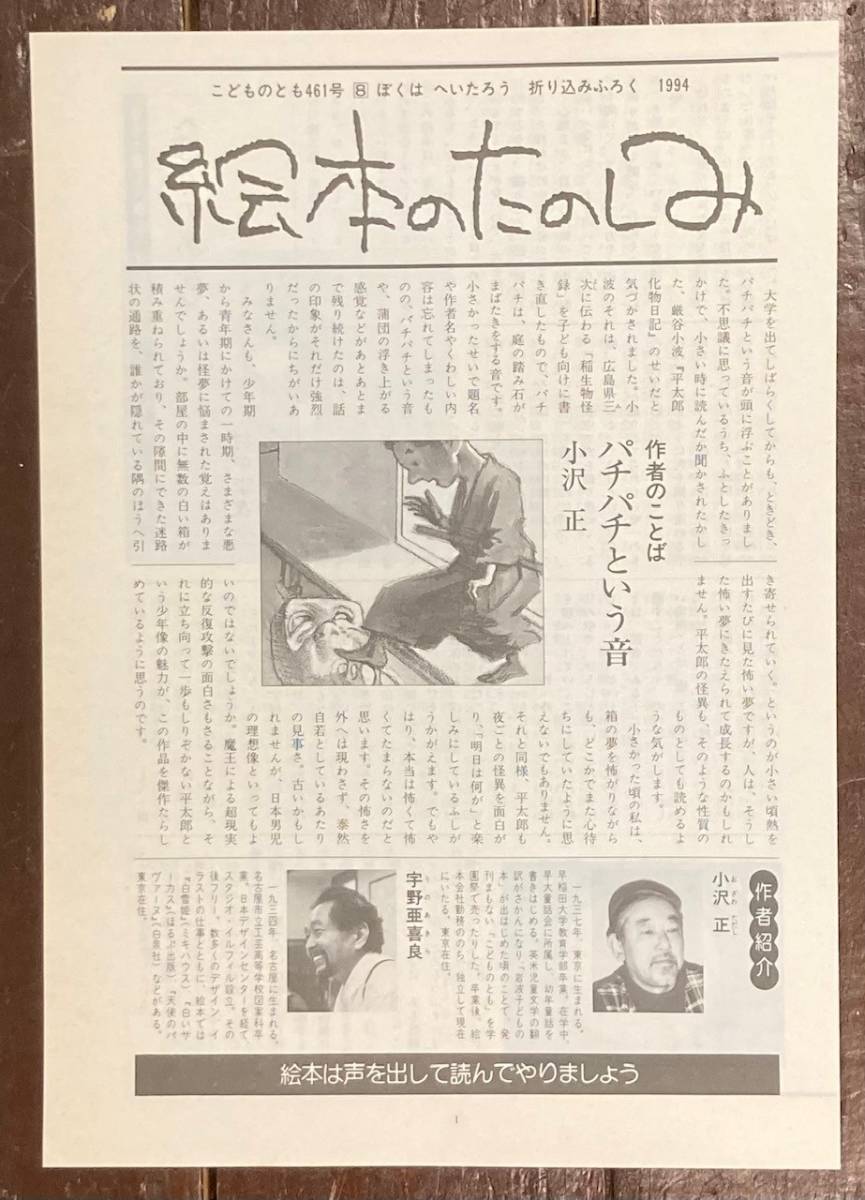 こどものとも461号 8 ぼくは へいたろう 折り込みふろく 1994
絵本のたのしみ
作者のことば
パチパチという音
小沢 正
大学を出てしばらくしてからも、ときどき、
パチパチという音が頭に浮ぶことがありまし
た。不思議に思っているうち、ふとしたきっ
かけで、小さい時に読んだか聞かされたかし
た、巌谷小波『平太郎
化物日記』のせいだと
気づかされました。小
波のそれは、広島県三
次に伝わる「稲生物怪
録」を子ども向けに書
き直したもので、パチ
パチは、庭の踏み石が
まばたきをする音です。
小さかったせいで題名
や作者名やくわしい内
容は忘れてしまったも
のの、パチパチという音
や、蒲団の浮き上がる
感覚などがあとあとま
で残り続けたのは、話
の印象がそれだけ強烈
だったからにちがいあ
りません。
みなさんも、少年期
から青年期にかけての一時期、さまざまな悪
夢、あるいは怪夢に悩まされた覚えはありま
せんでしょうか。部屋の中に無数の白い箱が
積み重ねられており、その隙間にできた迷路
状の通路を、誰かが隠れている隅のほうへ引
き寄せられていく。というのが小さい頃熱を
出すたびに見た怖い夢ですが、人は、そうし
た怖い夢にきたえられて成長するのかもしれ
ません。平太郎の怪異も、そのような性質の
ものとしても読めるよ
うな気がします。
小さかった頃の私は、
箱の夢を怖がりながら
も、どこかでまた心待
ちにしていたように思
えないでもありません。
それと同様、平太郎も
夜ごとの怪異を面白が
り、「明日は何が」と楽
しみにしているふしが
うかがえます。でもや
はり、本当は怖くて怖
くてたまらないのだと
思います。その怖さを
外へは現わさず、泰然
自若としているあたり
の見事さ。古いかもし
れませんが、日本男児
の理想像といってもよ
いのではないでしょうか。魔王による超現実
的な反復攻撃の面白さもさることながら、そ
れに立ち向って一歩もしりぞかない平太郎と
いう少年像の魅力が、この作品を傑作たらし
めているように思うのです。
作者紹介
小沢 正
おざわ ただし
一九三七年、東京に生まれる。
早稲田大学教育学部卒業。在学中、
早大童話会に所属し、幼年童話を
書きはじめる。英米児童文学の翻
訳がさかんになり「岩波子どもの
本」が出はじめた頃のことで、発
刊まもない「こどものとも」を学
園祭で売ったりした。卒業後、絵
本会社勤務ののち、独立して現在
にいたる。東京在住。
宇野亜喜良
うの あきら
一九三四年、名古屋に生まれる。
名古屋市立工芸高等学校図案科卒
業。日本デザインセンターを経て、
スタジオ・イルフィル設立。その
後フリー。数多くのデザイン、イ
ラストの仕事とともに、絵本では
『白雪姫』（ミキハウス）『白いサ
ーカス』（ほるぷ出版）、『天使のパ
ヴァーヌ』（白泉社）などがある。
東京在住。
絵本は声を出して読んでやりましょう
1